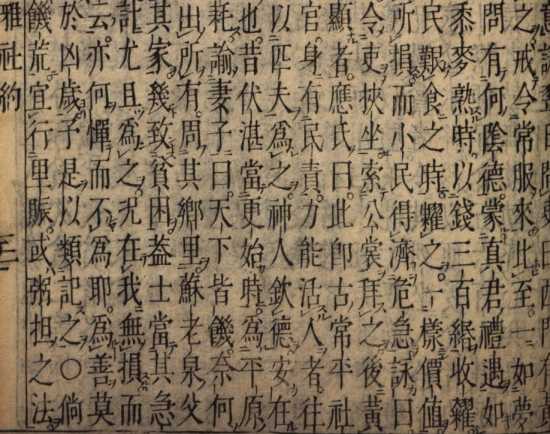 之戒令常服來此至一如夢
問有何陰德蒙真君禮遇如
黍麥熟時以錢三百緡收糴
民艱食之時糶之一樣價值
所損而小民得濟危急詠曰
令吏挾坐索公裳拜之後黃
顯者應氏曰此卽古常平社
官身有民責力能活人者往
以匹夫爲之神人欽德安在
也昔伏湛當更始時爲平原
耗諭妻子曰天下皆饑奈何
出所有周其鄉里蘇老泉父
其家幾致貧困蓋士當其急
且爲之尤在我無損而
云亦何憚而不爲耶爲善莫
於凶歲予是以類記之○倘
饑荒宜行里賑或粥担之法
雅社約